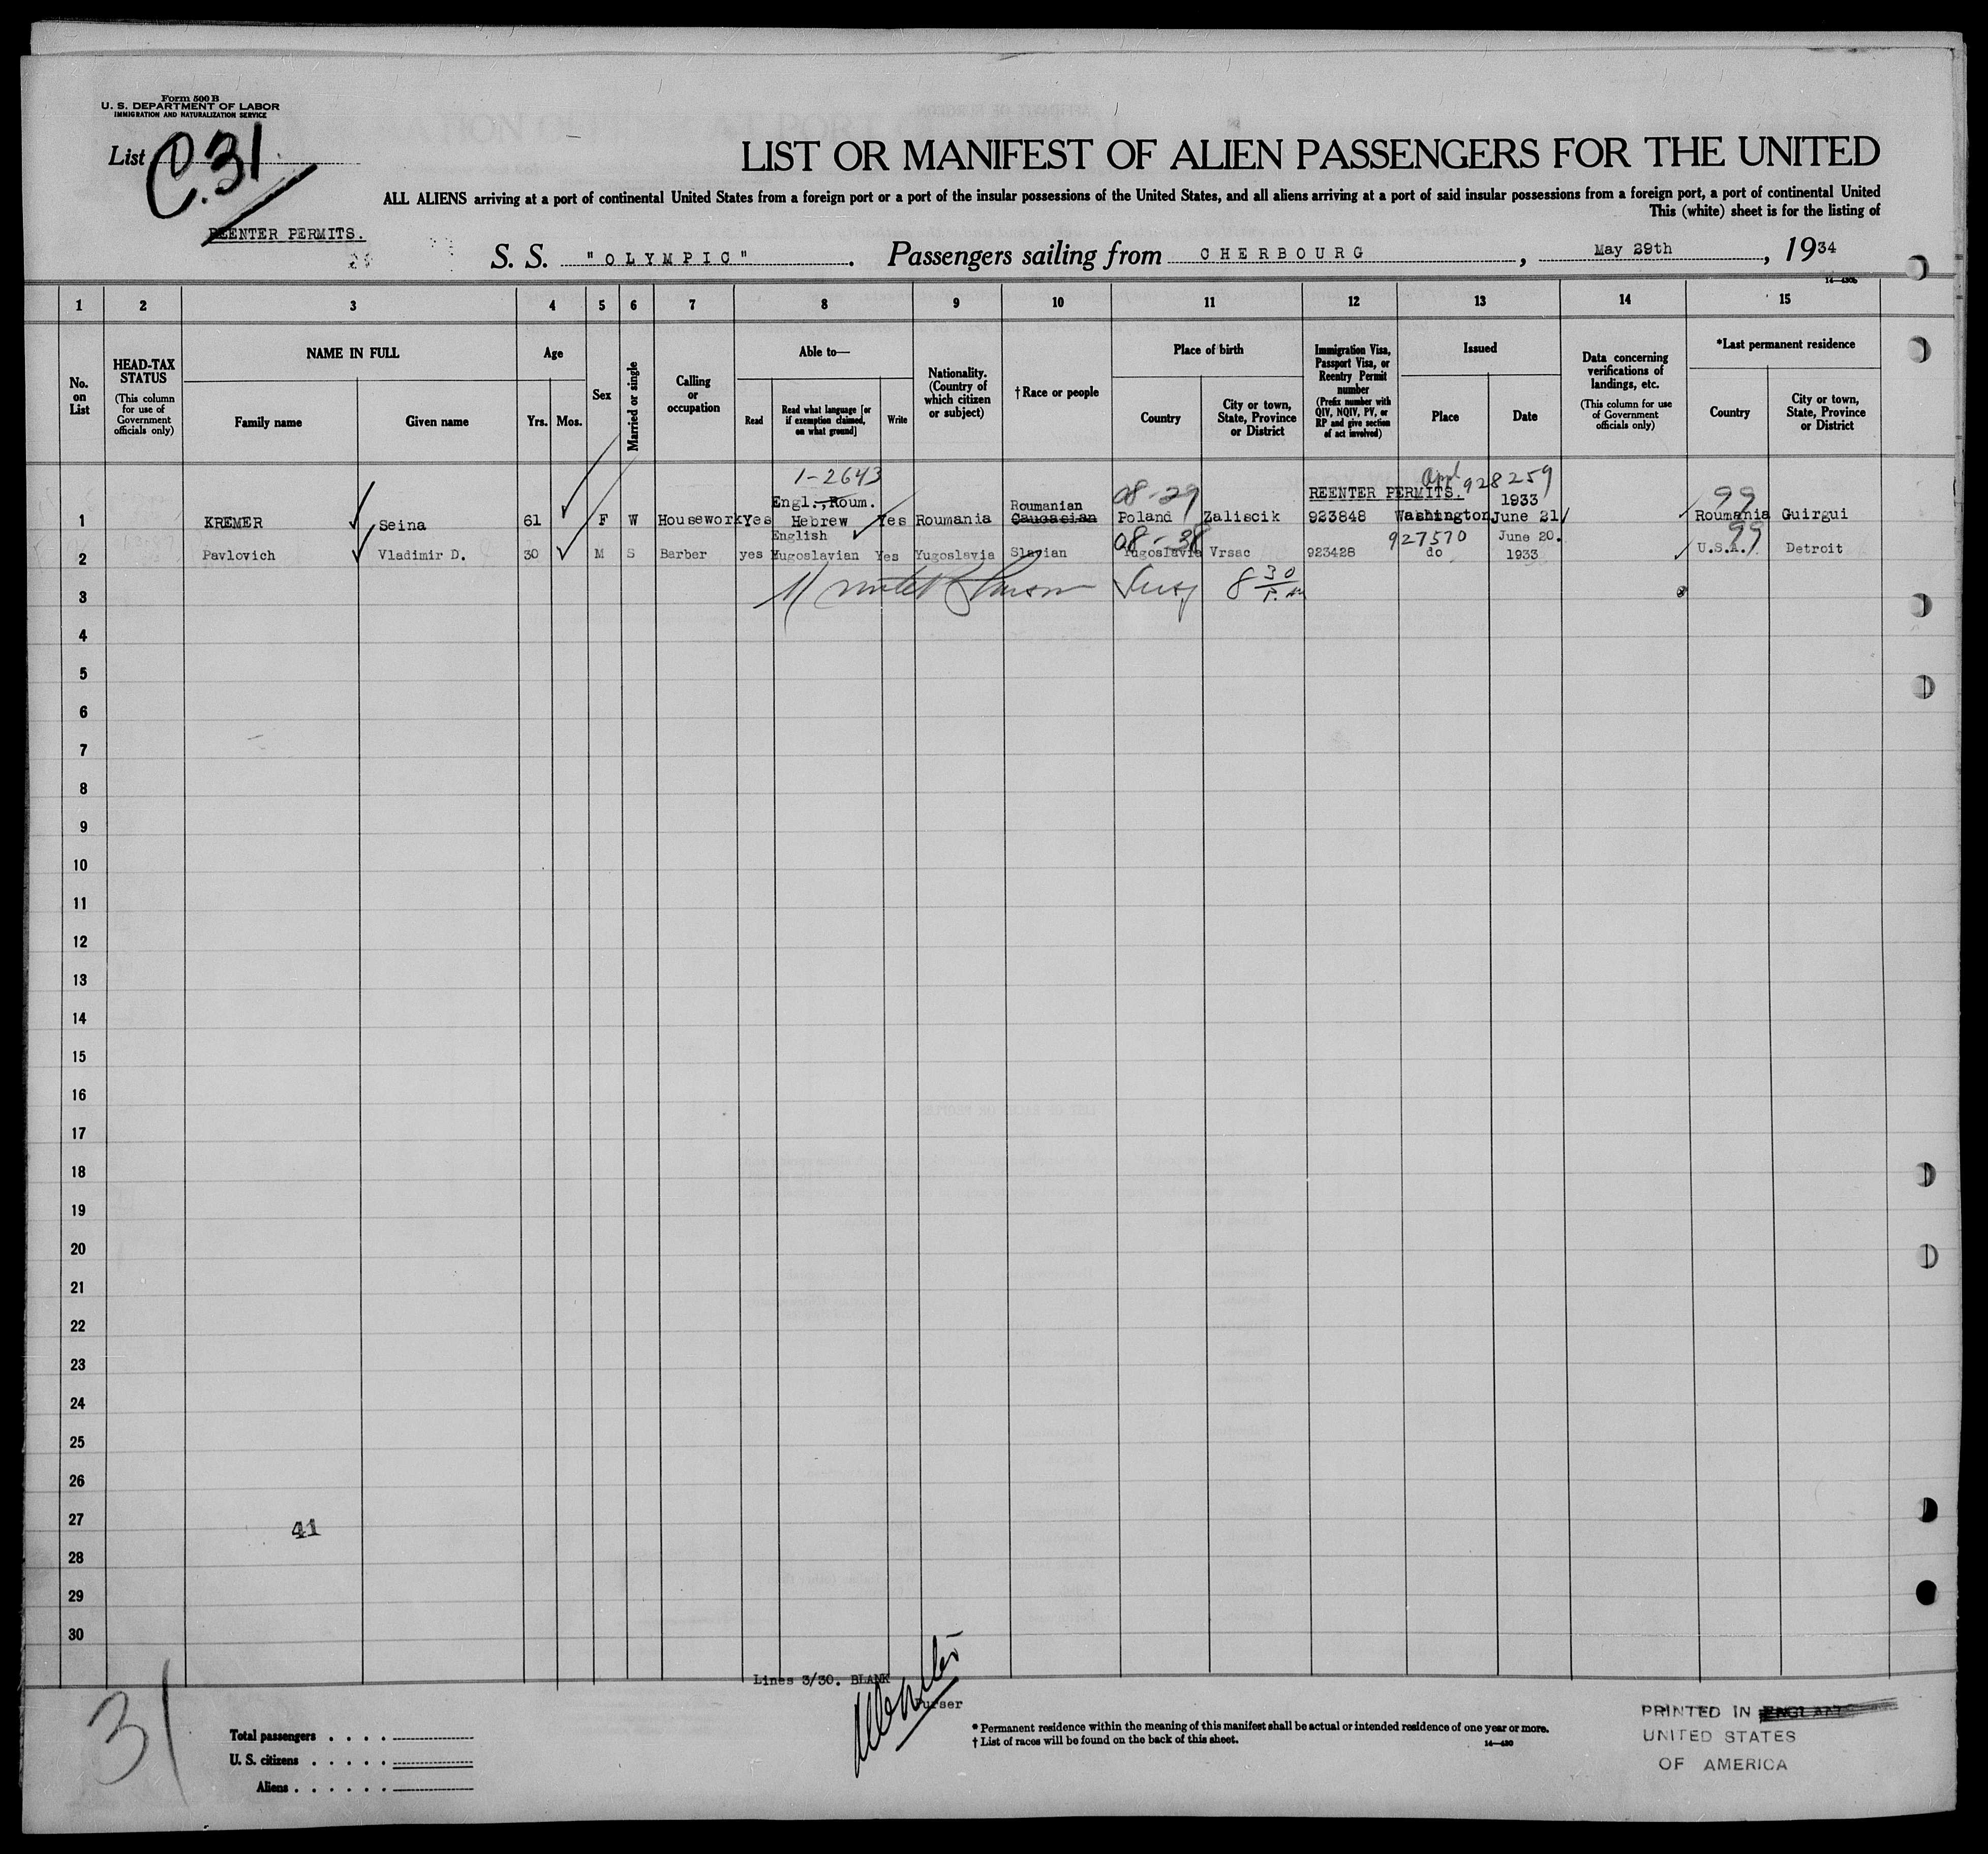 Form 500 B
U. S. DEPARTMENT OF LABOR
IMMIGRATION AND NATURALIZATION SERVICE
List C.31
LIST OR MANIFEST OF ALIEN PASSENGERS FOR THE UNITED
ALL ALIENS arriving at a port of continental United States from a foreign port or a port of the insular possessions of the United States, and all aliens arriving at a port of said insular possessions from a foreign port, a port of continental United
This (white) sheet is for the listing of
REENTER PERMITS.
S. S. "OLYMPIC". Passengers sailing from CHERBOURG, May 29th, 1934
14—430b
1 2 3 4 5 6 7 8 9 10 11 12 13 14 15
No. on List
HEAD-TAX STATUS
(This column for use of Government officials only)
NAME IN FULL
Family name
Given name
Age
Yrs.
Mos.
Sex
Married or single
Calling or occupation
Able to—
Read
Read what language [or if exemption claimed, on what ground]
Write
Nationality. (Country of which citizen or subject)
† Race or people
Place of birth
Country
City or town, State, Province or District
Immigration Visa, Passport Visa, or Reentry Permit number
(Prefix number with QIV, NQIV, PV, or RP and give section of act involved)
Issued
Place
Date
Data concerning verifications of landings, etc.
(This column for use of Government officials only)
*Last permanent residence
Country
City or town, State, Province or District
1-2643
Appl 928259
Engl.,Roum. Roumanian 08-29 REENTER PERMITS. 1933 99
1 KREMER Seina 61 F W Housework Yes Hebrew Yes Roumania Caucasian Poland Zaliscik 923848 Washington, June 21/ Roumania Guirgui
English 08-38 927570 June 20. 99
2 Pavlovich Vladimir D. 30 M S Barber yes Yugoslavian Yes Yugoslavia Slavian Yugoslavia Vrsac 923428 do 1933 U.S.A. Detroit
3 8 30 P.M
4
5
6
7
8
9
10
11
12
13
14
15
16
17
18
19
20
21
22
23
24
25
26
27 41
28
29
30
Lines 3/30. BLANK
Purser
31
Total passengers
U. S. citizens
Aliens
* Permanent residence within the meaning of this manifest shall be actual or intended residence of one year or more.
† List of races will be found on the back of this sheet.
14—430
PRINTED IN ENGLAND
UNITED STATES
OF AMERICA